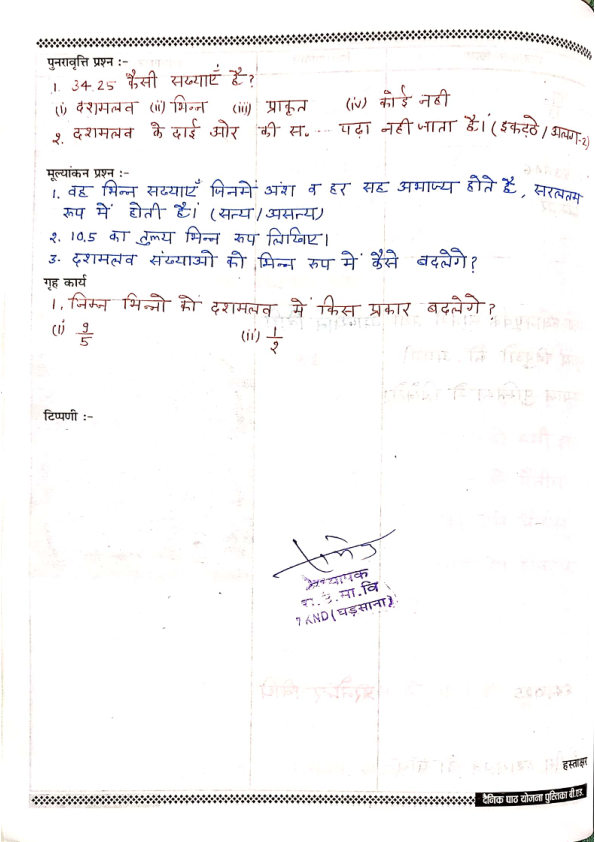 पुनरावृत्ति प्रश्न :-
1. 34.25 कैसी सख्याएँ है?
(i) दशमलव (ii) भिन्न (iii) प्राकृत (iv) कोई नही
२. दशमलव के दाई ओर की स.... पढ़ा नही जाता है। (इकटठे/अलग-२)
मूल्यांकन प्रश्न :-
1. वह भिन्न सख्याएँ जिनमें अंश व हर सह अभाज्य होते है, सरलतम
रूप में होती है। (सत्य/असत्य)
२. 10.5 का तुल्य भिन्न रूप लिखिए।
3. दशमलव संख्याओ को भिन्न रूप में कैसे बदलेगे?
गृह कार्य
1. निम्न भिन्नो को दशमलव में किस प्रकार बदलेगे?
(i) 9/5 (ii) 1/२
टिप्पणी :-
रा. उ. मा. वि
KND (घड़साना)
हस्ताक्षर
दैनिक पाठ योजना पुस्तिका बी.एड.